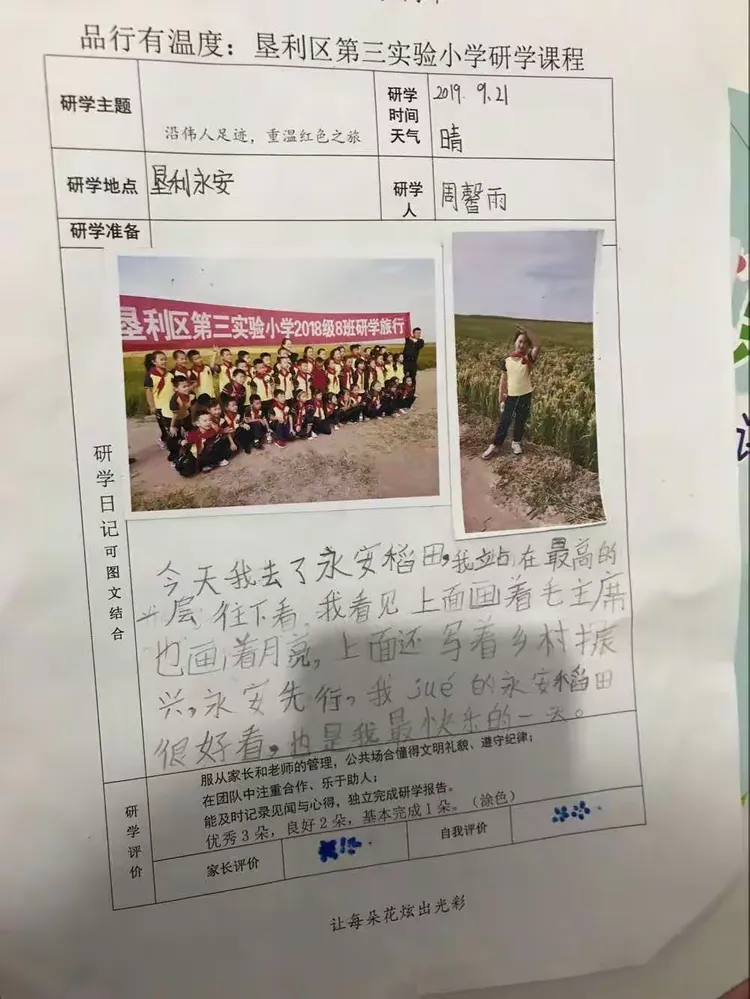 品行有温度：垦利区第三实验小学研学课程
研学主题
沿伟人足迹，重温红色之旅
研学
时间
天气
2019. 9.21
晴
研学地点
垦利永安
研学
人
周馨雨
研学准备
垦利区第三实验小学2018级8班研学旅行
研学日记可图文结合
今天我去了永安稻田，我站在最高的
一层往下看，我看见上面画着毛主席
也画着月亮，上面还写着乡村振
兴，永安先行。我jué的永安稻田
很好看，也是我最快乐的一天。
研学评价
服从家长和老师的管理，公共场合懂得文明礼貌、遵守纪律；
在团队中注重合作、乐于助人；
能及时记录见闻与心得，独立完成研学报告。
优秀3朵，良好2朵，基本完成1朵。（涂色）
家长评价
自我评价
让每朵花炫出光彩